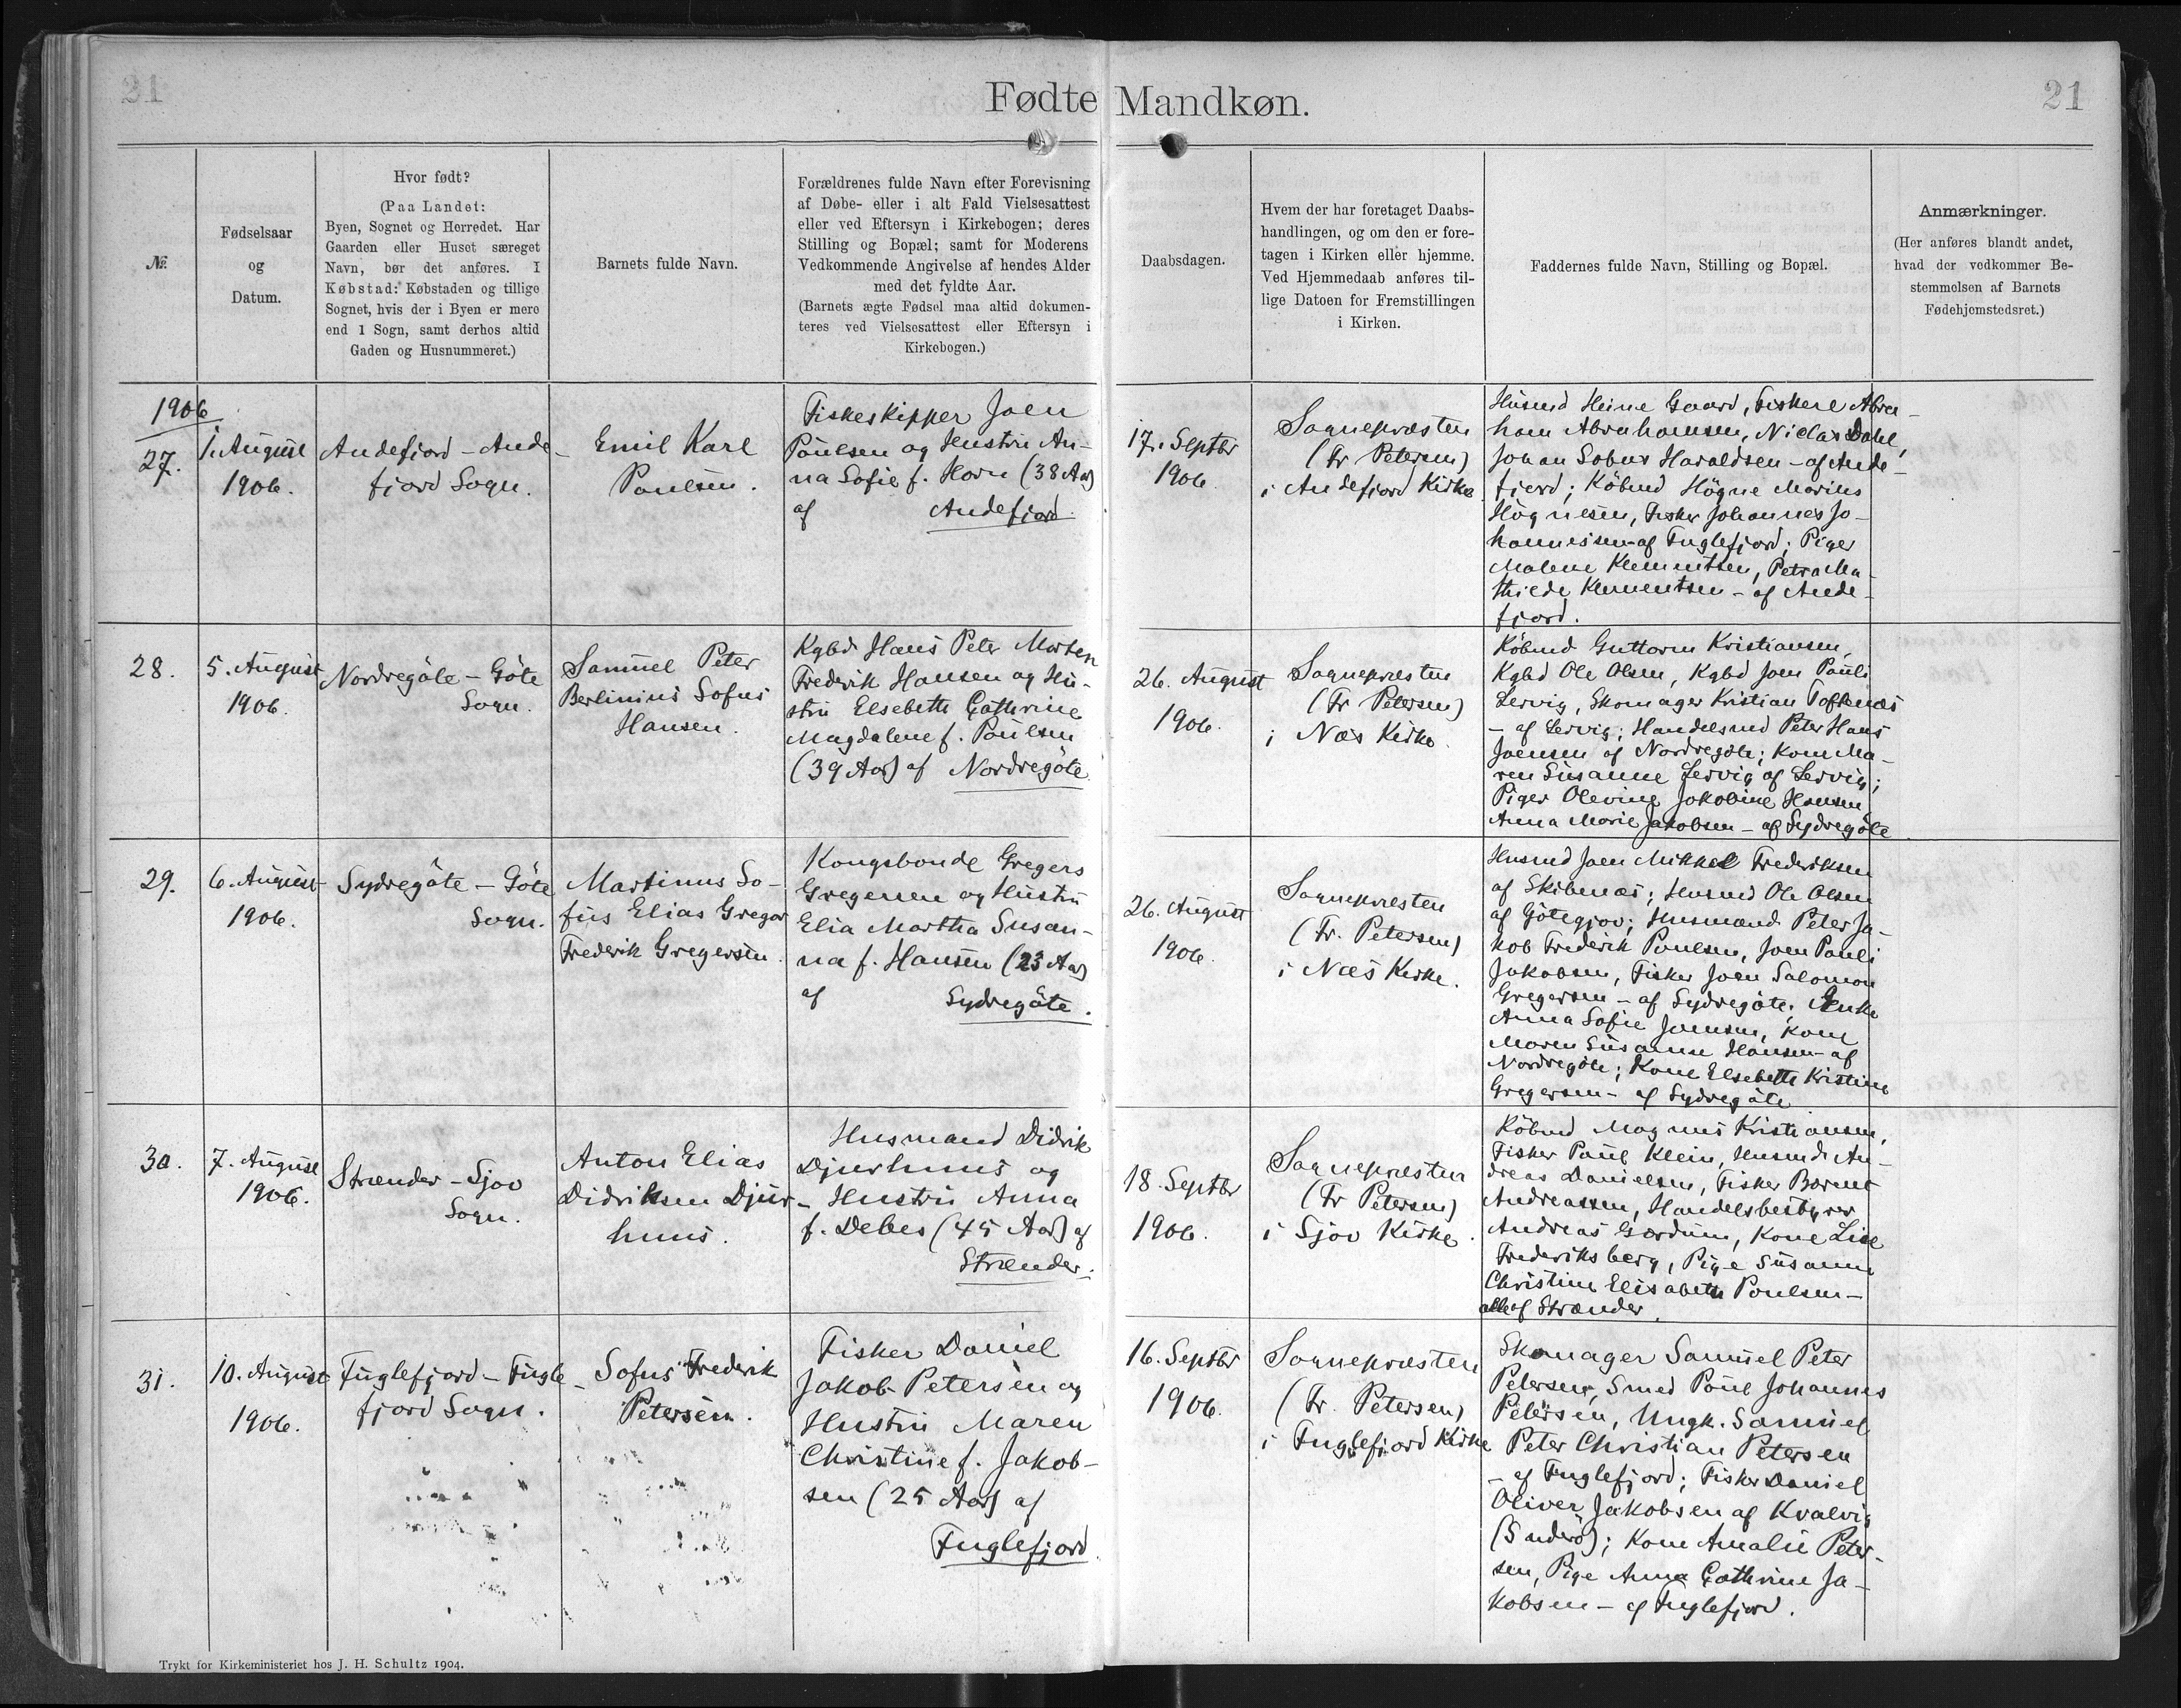 21
Fødte Mandkøn.
21
№
Fødselsaar
og
Datum.
Hvor født?
(Paa Landet:
Byen, Sognet og Herredet. Har
Gaarden eller Huset særeget
Navn, bør det anføres. I
Købstad: Købstaden og tillige
Sognet, hvis der i Byen er mere
end 1 Sogn, samt derhos altid
Gaden og Husnummeret.)
Barnets fulde Navn.
Forældrenes fulde Navn efter Forevisning
af Døbe- eller i alt Fald Vielsesattest
eller ved Eftersyn i Kirkebogen; deres
Stilling og Bopæl; samt for Moderens
Vedkommende Angivelse af hendes Alder
med det fyldte Aar.
(Barnets ægte Fødsel maa altid dokumen-
teres ved Vielsesattest eller Eftersyn i
Kirkebogen.)
Daabsdagen.
Hvem der har foretaget Daabs-
handlingen, og om den er fore-
tagen i Kirken eller hjemme.
Ved Hjemmedaab anføres til-
lige Datoen for Fremstillingen
i Kirken.
Faddernes fulde Navn, Stilling og Bopæl.
Anmærkninger.
(Her anføres blandt andet,
hvad der vedkommer Be-
stemmelsen af Barnets
Fødehjemstedsret.)
1906
27.
1. August
1906.
Andefjord - Ande-
fjord Sogn.
Emil Karl
Poulsen.
Fiskeskipper Joen
Poulsen og Hustru An-
na Sofie f. Horn (38 Aar)
af Andefjord.
17. Septbr
1906.
Sognepræsten
(Fr Petersen)
i Andefjord Kirke
Husmd Heine Gaard, Fiskere Abra-
ham Abrahamsen, Niclas Dahl,
Johan Sobus Haraldsen - af Ande-
fjord; Köbmd Högne Marius
Högnesen, Fisker Johannes Jo-
hannesen - af Fuglefjord; Piger
Malene Klementsen, Petra Ma-
thilde Klementsen - af Ande-
fjord.
28.
5. August
1906.
Nordregöte - Göte
Sogn.
Samuel Peter
Berlinius Sofus
Hansen.
Kgbd Hans Peter Morten
Frederik Hansen og Hu-
stru Elsebeth Cathrine
Magdalene f. Poulsen
(39 Aar) af Nordregöte
26. August
1906.
Sognepræsten
(Fr Petersen)
i Næs Kirke.
Köbmd Guttorm Kristiansen,
Kgbd Ole Olsen, Kgbd Joen Pauli
Lervig, Skomager Kristian Toftenæs
- af Lervig; Handelsmd Peter Hans
Joensen af Nordregöte; Kone Ma-
ren Susanne Lervig af Lervig;
Piger Olevine Jakobine Hansen
Anna Marie Jakobsen - af Sydregöte.
29.
6. August
1906.
Sydregöte - Göte
Sogn.
Martinus So-
fus Elias Gregor
Frederik Gregersen.
Kongsbonde Gregers
Gregersen og Hustru
Elia Martha Susan-
na f. Hansen (23 Aar)
af Sydregöte.
26. August
1906.
Sognepræsten
(Fr. Petersen)
i Næs Kirke.
Husmd Joen Mikkel Frederiksen
af Skibenæs; Husmd Ole Olsen
af Götegjov; Husmand Peter Ja-
kob Frederik Poulsen, Joen Pauli
Jakobsen, Fisker Joen Salomon
Gregersen - af Sydregöte; Enke
Anna Sofie Joensen, Kone
Maren Susanne Hansen - af
Nordregöte; Kone Elsebeth Kristine
Gregersen - af Sydregöte
30.
7. August
1906.
Strænder - Sjov
Sogn.
Anton Elias
Didriksen Djur-
huus.
Husmand Didrik
Djurhuus og
Hustru Anna
f. Debes (45 Aar) af
Strænder.
18. Septbr
1906.
Sognepræsten
(Fr Petersen)
i Sjov Kirke.
Köbmd Magnus Kristiansen,
Fisker Poul Klein, Husmd An-
dreas Danielsen, Fisker Berent
Andreassen, Handelsbestyrer
Andreas Gærdum, Kone Lise
Frederiksberg, Pige Susanne
Christine Elisabeth Poulsen -
alle af Strænder.
31.
10. August
1906.
Fuglefjord - Fugle-
fjord Sogn.
Sofus Frederik
Petersen.
Fisker Daniel
Jakob Petersen og
Hustru Maren
Christine f. Jakob-
sen (25 Aar) af
Fuglefjord.
16. Septbr
1906.
Sognepræsten
(Fr. Petersen)
i Fuglefjord Kirke
Skomager Samuel Peter
Petersen, Smed Poul Johannes
Petersen, Ungk. Samuel
Peter Christian Petersen
- af Fuglefjord; Fisker Daniel
Oliver Jakobsen af Kvalvig
(Suderö); Kone Amalie Peter-
sen, Pige Anna Cathrine Ja-
kobsen - af Fuglefjord.
Trykt for Kirkeministeriet hos J. H. Schultz 1904.